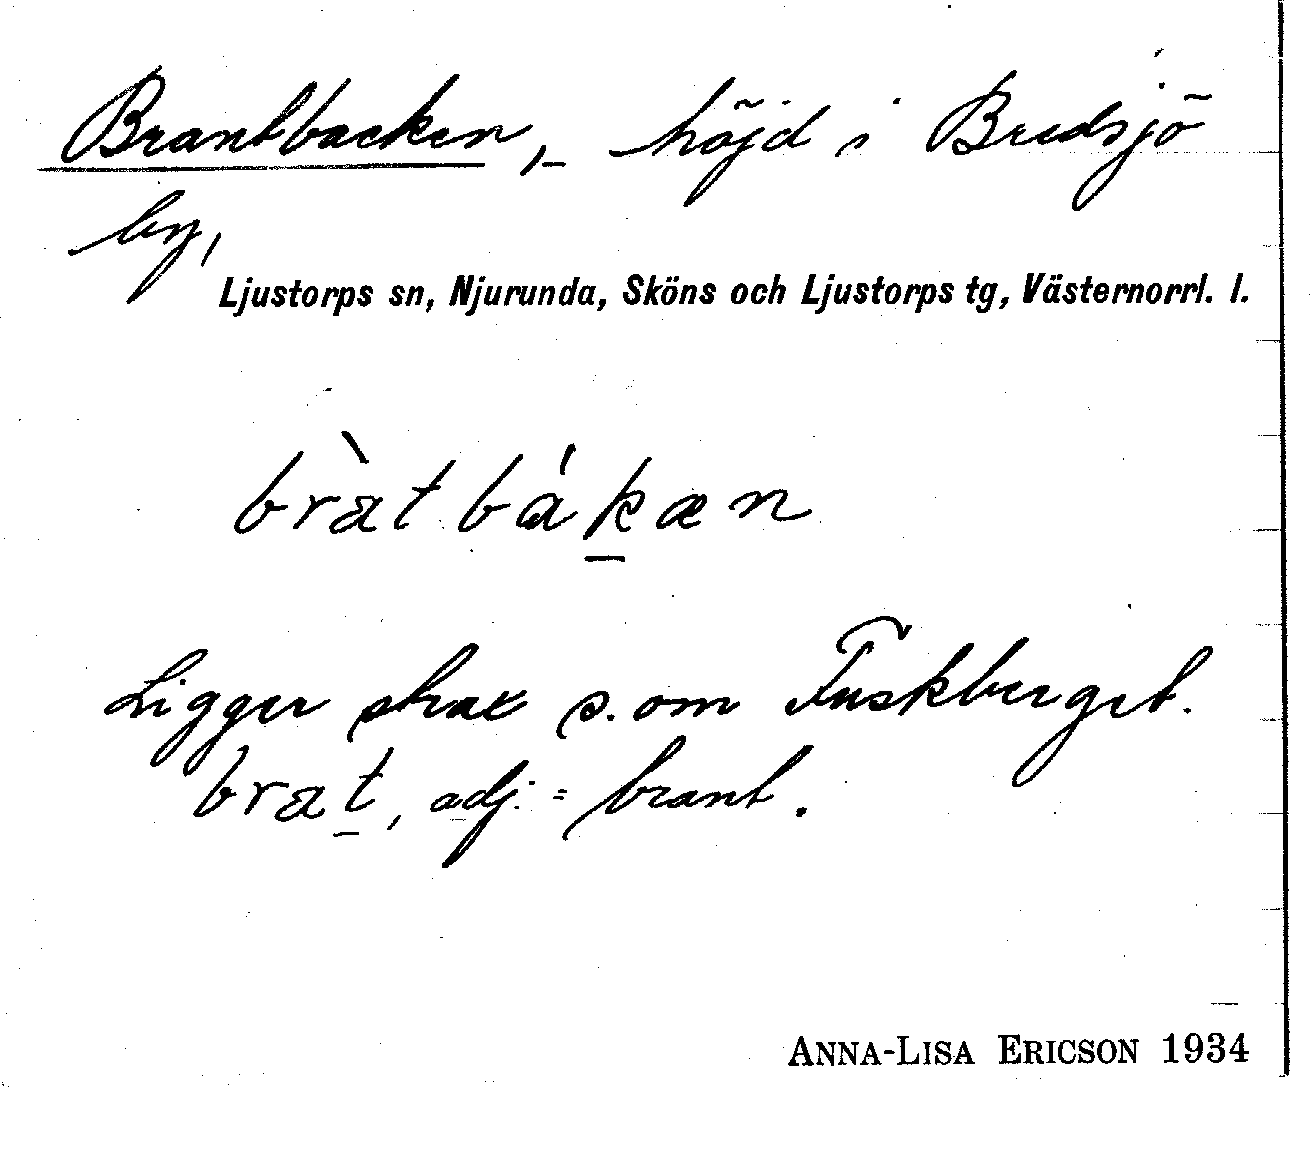 Brantbacken, - höjd i Bredsjö
by,
Ljustorps sn, Njurunda, Sköns och Ljustorps tg, Västernorrl. l.
bràtbákæn
Ligger strax s. om Fuskberget.
brat, adj. = brant.
ANNA-LISA ERICSON 1934